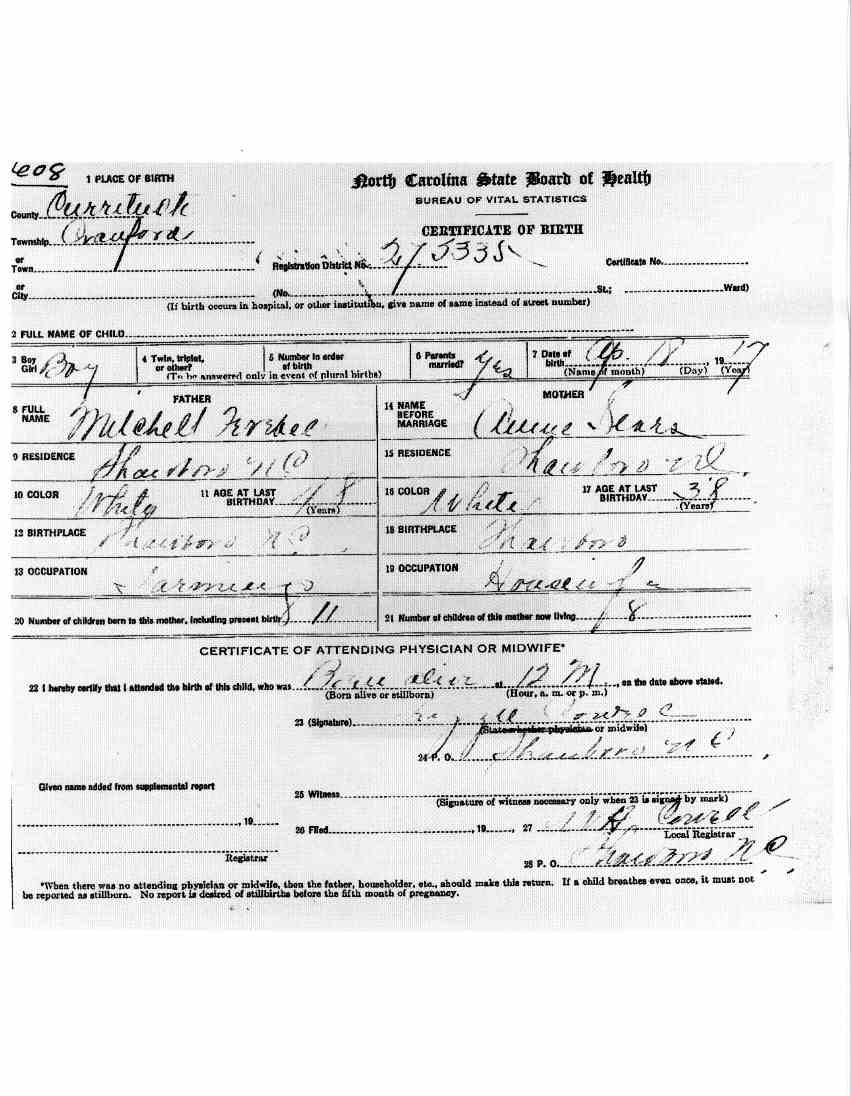 608
1 PLACE OF BIRTH
North Carolina State Board of Health
BUREAU OF VITAL STATISTICS
County Currituck
CERTIFICATE OF BIRTH
Township Crawford
or Town
Registration District No. 27 5335
Certificate No.
or City
(No. St.; Ward)
(If birth occurs in hospital, or other institution, give name of same instead of street number)
2 FULL NAME OF CHILD
3 Boy Girl Boy
4 Twin, triplet, or other?
5 Number in order of birth
(To be answered only in event of plural births)
6 Parents married? Yes
7 Date of birth Ap. 18, 1917
(Name of month) (Day) (Year)
FATHER
8 FULL NAME Mitchell Ferebee
9 RESIDENCE Shawboro N C
10 COLOR White
11 AGE AT LAST BIRTHDAY 48
(Years)
12 BIRTHPLACE Shawboro N C
13 OCCUPATION Farming
MOTHER
14 NAME BEFORE MARRIAGE Annie Sears
15 RESIDENCE Shawboro N C
16 COLOR White
17 AGE AT LAST BIRTHDAY 38
(Years)
18 BIRTHPLACE Shawboro
19 OCCUPATION Housewife
20 Number of children born to this mother, including present birth 11
21 Number of children of this mother now living 8
CERTIFICATE OF ATTENDING PHYSICIAN OR MIDWIFE*
22 I hereby certify that I attended the birth of this child, who was Born alive at 12 M, on the date above stated.
(Born alive or stillborn) (Hour, a. m. or p. m.)
23 (Signature)
(State whether physician or midwife)
24 P. O. Shawboro N C
Given name added from supplemental report
25 Witness
(Signature of witness necessary only when 23 is signed by mark)
, 19
26 Filed , 19 , 27 Cowell
Local Registrar
Registrar
28 P. O. Shawboro N C
*When there was no attending physician or midwife, then the father, householder, etc., should make this return. If a child breathes even once, it must not
be reported as stillborn. No report is desired of stillbirths before the fifth month of pregnancy.